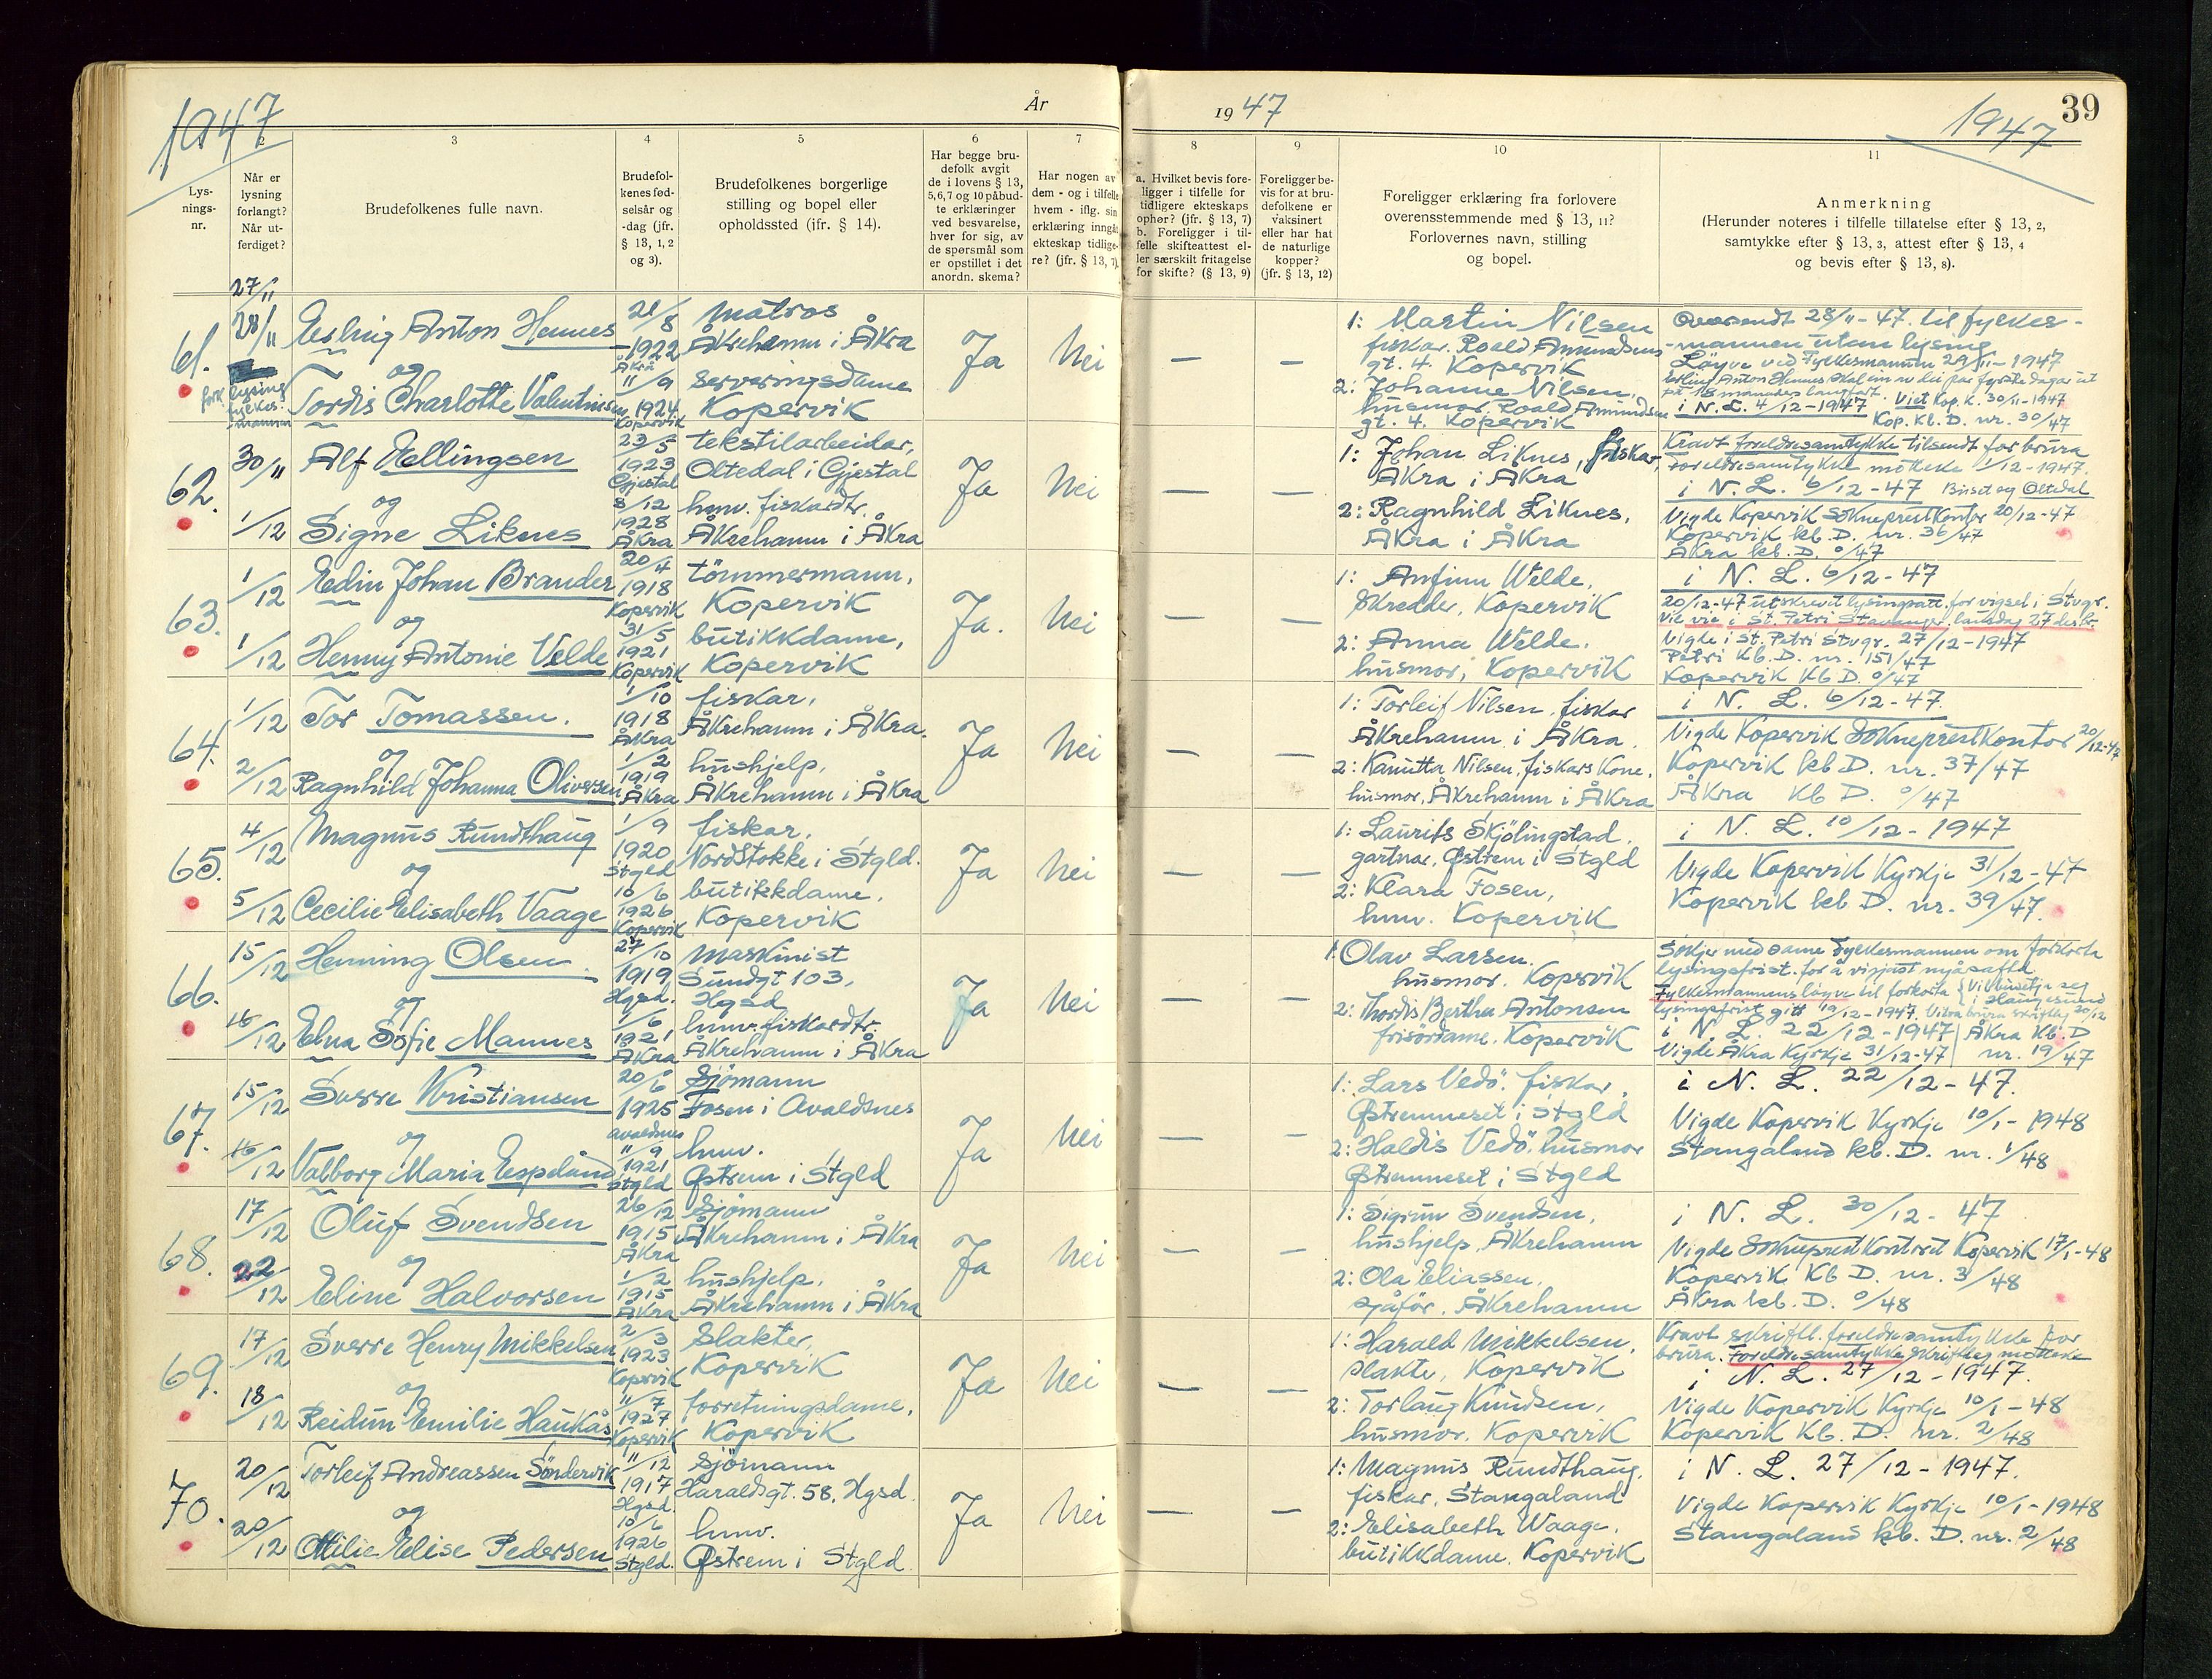 1947
År
19 47
1947
39
2
3
4
5
6
7
8
9
10
11
Lys-
nings-
nr.
Når er
lysning
forlangt?
Når ut-
ferdiget?
Brudefolkenes fulle navn.
Brudefol-
kenes fød-
selsår og
-dag (jfr.
§ 13, 1, 2
og 3).
Brudefolkenes borgerlige
stilling og bopel eller
opholdssted (jfr. § 14).
Har begge bru-
defolk avgit
de i lovens § 13,
5,6,7 og 10 påbud-
te erklæringer
ved besvarelse,
hver for sig, av
de spørsmål som
er opstillet i det
anordn. skema?
Har nogen av
dem - og i tilfelle
hvem - iflg. sin
erklæring inngåt
ekteskap tidlige-
re? (jfr. § 13, 7).
a. Hvilket bevis fore-
ligger i tilfelle for
tidligere ekteskaps
ophør? (jfr. § 13, 7)
b. Foreligger i til-
felle skifteattest el-
ler særskilt fritagelse
for skifte? (§ 13, 9)
Foreligger be-
vis for at bru-
defolkene er
vaksinert
eller har hat
de naturlige
kopper?
(jfr. § 13, 12)
Foreligger erklæring fra forlovere
overensstemmende med § 13, 11?
Forlovernes navn, stilling
og bopel.
Anmerkning
(Herunder noteres i tilfelle tillatelse efter § 13, 2,
samtykke efter § 13, 3, attest efter § 13, 4
og bevis efter § 13, 8).
61.
27/11
28/11
fork. lysing
fylkes-
mannen
Erling Anton Hemnes
og
Tordis Charlotte Valentinsen
21/8
1922
Åkra
11/9
1924
Kopervik
Matros
Åkrehamn i Åkra
Serveringsdame
Kopervik
Ja
Nei
—
—
1: Martin Nilsen
fiskar. Roald Amundsens
gt. 4. Kopervik
2: Johanne Nilsen,
husmor. Roald Amundsens
gt. 4. Kopervik
Oversendt 28/11-47. til fylkes-
mannen utan lysing
Løyve ved Fylkesmannen 29/11-1947
i N. L. 4/12-1947
Viet Kop. K. 30/11-1947
Kop. Kb. D. nr. 30/47
62.
30/11
1/12
Alf Eellingsen
og
Signe Liknes
23/5
1923
Gjestal
8/12
1928
Åkra
tekstilarbeidar,
Oltedal i Gjestal
hmv. fiskardtr.
Åkrehamn i Åkra
Ja
Nei
—
—
1: Johan Liknes, fiskar,
Åkra i Åkra
2: Ragnhild Liknes,
Åkra i Åkra
Kravt foreldresamtykke tilsendt for brura
Foreldresamtykke motteke 1/12-1947.
i N. L. 6/12-47 Buset og Oltedal
Vigde Kopervik Sokneprestkontor 20/12-47
Kopervik kb. D. nr. 36/47
Åkra kb. D. 0/47
63.
1/12
1/12
Edin Johan Brander
og
Henny Antonie Velde
20/4
1918
Kopervik
31/5
1921
Kopervik
tömmermann,
Kopervik
butikkdame,
Kopervik
Ja.
Nei
—
—
1: Anfinn Welde,
Skredder, Kopervik
2: Anna Welde,
husmor, Kopervik
i N. L. 6/12-47
20/12-47 utskrevet lysingsatt. for vigsel i Stvgr.
Vil vie i St. Petri Stavanger, laurdag 27 desbr.
Vigde i St. Petri Stvgr. 27/12-1947
Petri Kb. D. nr. 151/47
Kopervik Kb D. 0/47
64.
1/12
2/12
Tor Tomassen.
og
Ragnhild Johanna Oliversen
1/10
1918
Åkra
1/2
1919
Åkra
fiskar,
Åkrehamn i Åkra.
hushjelp,
Åkrehamn i Åkra
Ja
Nei
—
—
1: Torleif Nilsen, fiskar
Åkrehamn i Åkra.
2: Kanutta Nilsen, fiskars Kone,
husmor, Åkrehamn i Åkra
i N. L. 6/12-47.
Vigde Kopervik Sokneprestkontor 20/12-47
Kopervik kb D. nr. 37/47
Åkra Kb D. 0/47
65.
4/12
5/12
Magnus Rundthaug
og
Cecilie Elisabeth Vaage
1/9
1920
Stgld
10/6
1926
Kopervik
fiskar,
Nordstokke i Stgld.
butikkdame,
Kopervik
Ja
Nei
—
—
1: Laurits Skjölingstad,
gartnar, Østrem i Stgld
2: Klara Fosen,
hmv. Kopervik
i N. L. 10/12-1947
Vigde Kopervik Kyrkje 31/12-47
Kopervik kb. D. nr. 39/47.
66.
15/12
16/12
Henning Olsen
og
Elna Sofie Mannes
27/10
1919
Hgsd.
1/6
1921
Åkra
maskinist
Sundgt 103,
Hgsd
hmv. fiskardtr.
Åkrehamn i Åkra
Ja
Nei
—
—
1: Olav Larsen.
husmor. Kopervik
2: Thordis Berthe Antonsen
frisördame. Kopervik
Søkjer med same Fylkesmannen om forkorta
lysingsfrist. for å vigjast nyårsaftå
Fylkesmannens løyve til forkorta
lysingsfrist gitt 19/12-1947.
i N. L. 22/12-1947
Vigde Åkra Kyrkje 31/12-47
Åkra Kb. D
nr. 19/47
67.
15/12
16/12
Sverre Kristiansen
og
Valborg Maria Espeland
20/6
1925
Avaldsnes
11/9
1921
Stgld
Sjömann
Fosen i Avaldsnes
hmv.
Østrem i Stgld
Ja
Nei
—
—
1: Lars Vedö. fiskar,
Østremneset i Stgld
2: Haldis Vedö. husmor
Østremneset i Stgld
i N. L. 22/12-47.
Vigde Kopervik Kyrkje 10/1-1948
Stangaland kb. D. nr. 1/48
68.
17/12
22/12
Oluf Svendsen
og
Eline Halvorsen
26/12
1915
Åkra
1/2
1915
Åkra
Sjömann
Åkrehamn i Åkra
hushjelp,
Åkrehamn i Åkra
Ja
Nei
—
—
1: Sigrun Svendsen,
hushjelp, Åkrehamn
2: Ola Eliassen,
sjåför, Åkrehamn
i N. L. 30/12-47
Vigde Sokneprestkontoret Kopervik 17/1-48
Kopervik Kb D. nr. 3/48
Åkra kb. D. 0/48
69.
17/12
18/12
Sverre Henry Mikkelsen
og
Reidun Emilie Haukås
2/3
1923
Kopervik
11/7
1927
Kopervik
Slakter,
Kopervik
forretningsdame,
Kopervik
Ja
Nei
—
—
1: Harald Mikkelsen,
slakte, Kopervik
2: Torlaug Knudsen,
husmor. Kopervik
Kravt skriftl. foreldresamtykke for
brura. Foreldresamtykke skriftleg motteke
i N. L. 27/12-1947.
Vigde Kopervik Kyrkje 10/1-48
Kopervik Kb. D. nr. 2/48
70.
20/12
20/12
Torleif Andreassen Söndervik
og
Ottilie Elise Pedersen
11/12
1917
Hgsd.
10/6
1926
Stgld.
sjömann
Haraldsgt. 58, Hgsd.
hmv.
Østrem i Stgld
Ja
Nei
—
—
1: Magnus Rundthaug,
fiskar, Stangaland
2: Elisabeth Waage,
butikkdame. Kopervik
i N. L. 27/12-1947.
Vigde Kopervik Kyrkje 10/1-1948
Stangaland kb. D. nr. 2/48